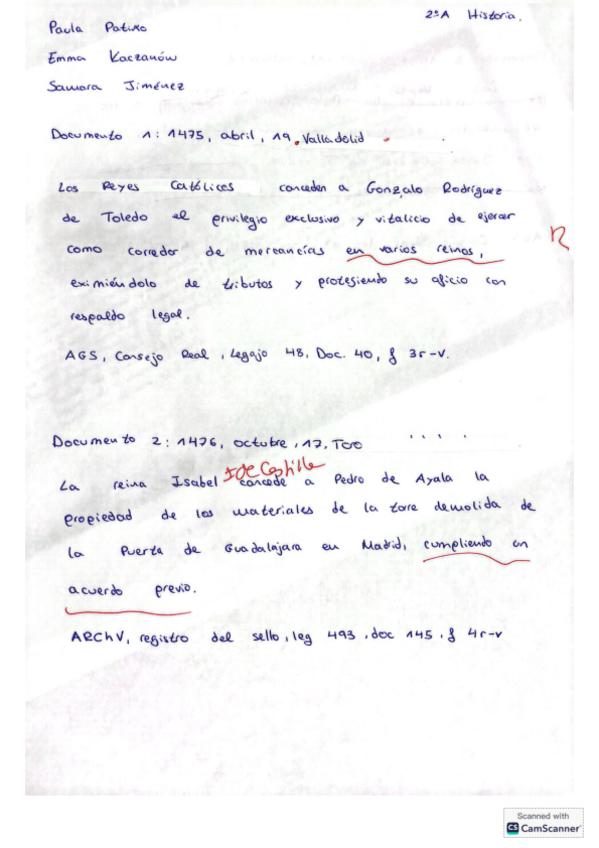 2ºA Historia.
Paula Patiño
Emma Kaczanów
Samara Jiménez
Documento 1: 1475, abril, 19. Valladolid
Los Reyes Católicos conceden a Gonzalo Rodríguez
de Toledo el privilegio exclusivo y vitalicio de ejercer
como corredor de mercancías en varios reinos,
eximiéndolo de tributos y protegiendo su oficio con
respaldo legal.
AGS, Consejo Real, Legajo 48, Doc. 40, f 3r-v.
Documento 2: 1476, octubre, 17, Toro
I de Castilla
La reina Isabel concede a Pedro de Ayala la
propiedad de los materiales de la torre demolida de
la Puerta de Guadalajara en Madrid, cumpliendo un
acuerdo previo.
ARChV, registro del sello, leg 493, doc 145, f 4r-v
Scanned with
CS CamScanner